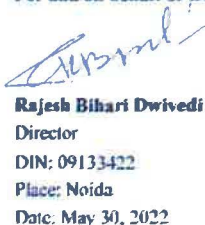 Rajesh Bihari Dwivedi
Director
DIN: 09133422
Place: Noida
Date: May 30, 2022